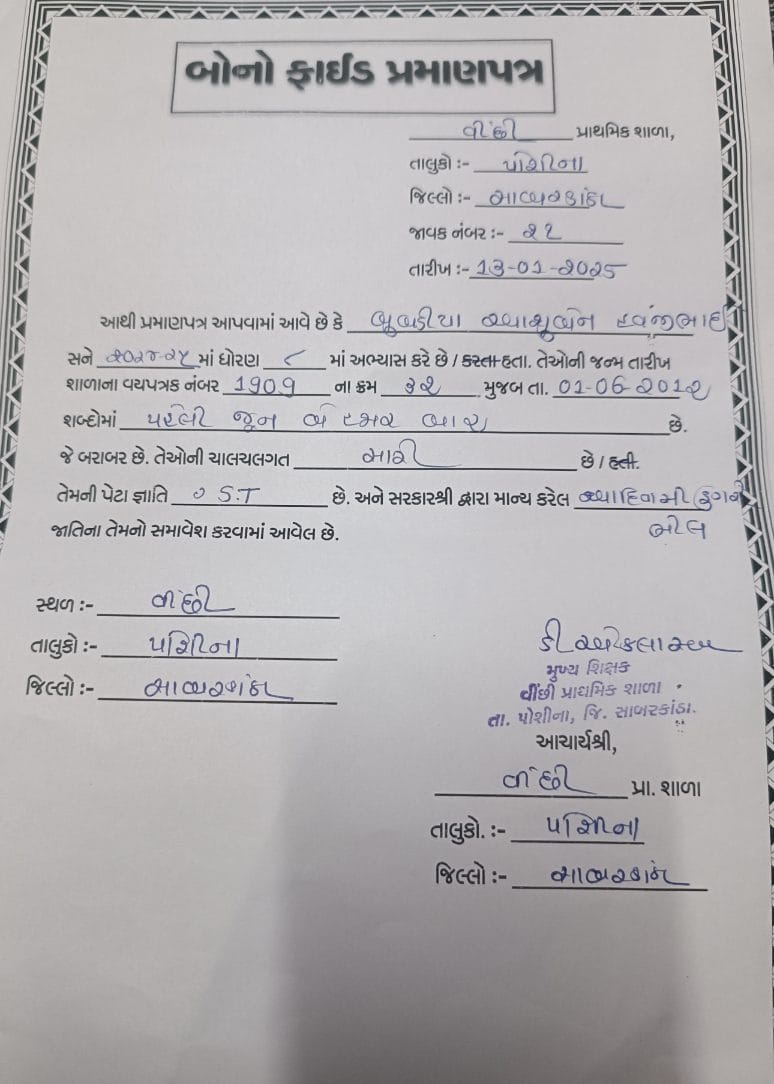 બોનો ફાઈડ પ્રમાણપત્ર
વીંછી પ્રાથમિક શાળા,
તાલુકો :- પોશીના
જિલ્લો :- સાબરકાંઠા
જાવક નંબર :- ૨૨
તારીખ :- 13-01-૨૦૨૫
આથી પ્રમાણપત્ર આપવામાં આવે છે કે બુબડીયા
સને ૨૦૨૪-૨૫ માં ધોરણ ૮ માં અભ્યાસ કરે છે / કરતા હતા. તેઓની જન્મ તારીખ
શાળાના વયપત્રક નંબર 1909 ના ક્રમ ૩૨ મુજબ તા. 01-06-૨૦1૨
શબ્દોમાં પહેલી જૂન બે હજાર બાર છે.
જે બરાબર છે. તેઓની ચાલચલગત સારી છે / હતી.
તેમની પેટા જ્ઞાતિ S.T છે. અને સરકારશ્રી દ્વારા માન્ય કરેલ આદિવાસી ડુંગરી
ભીલ
જાતિના તેમનો સમાવેશ કરવામાં આવેલ છે.
સ્થળ :- વીંછી
તાલુકો :- પોશીના
જિલ્લો :- સાબરકાંઠા
મુખ્ય શિક્ષક
વીંછી પ્રાથમિક શાળા
તા. પોશીના, જિ. સાબરકાંઠા.
આચાર્યશ્રી,
વીંછી પ્રા. શાળા
તાલુકો. :- પોશીના
જિલ્લો :- સાબરકાંઠા